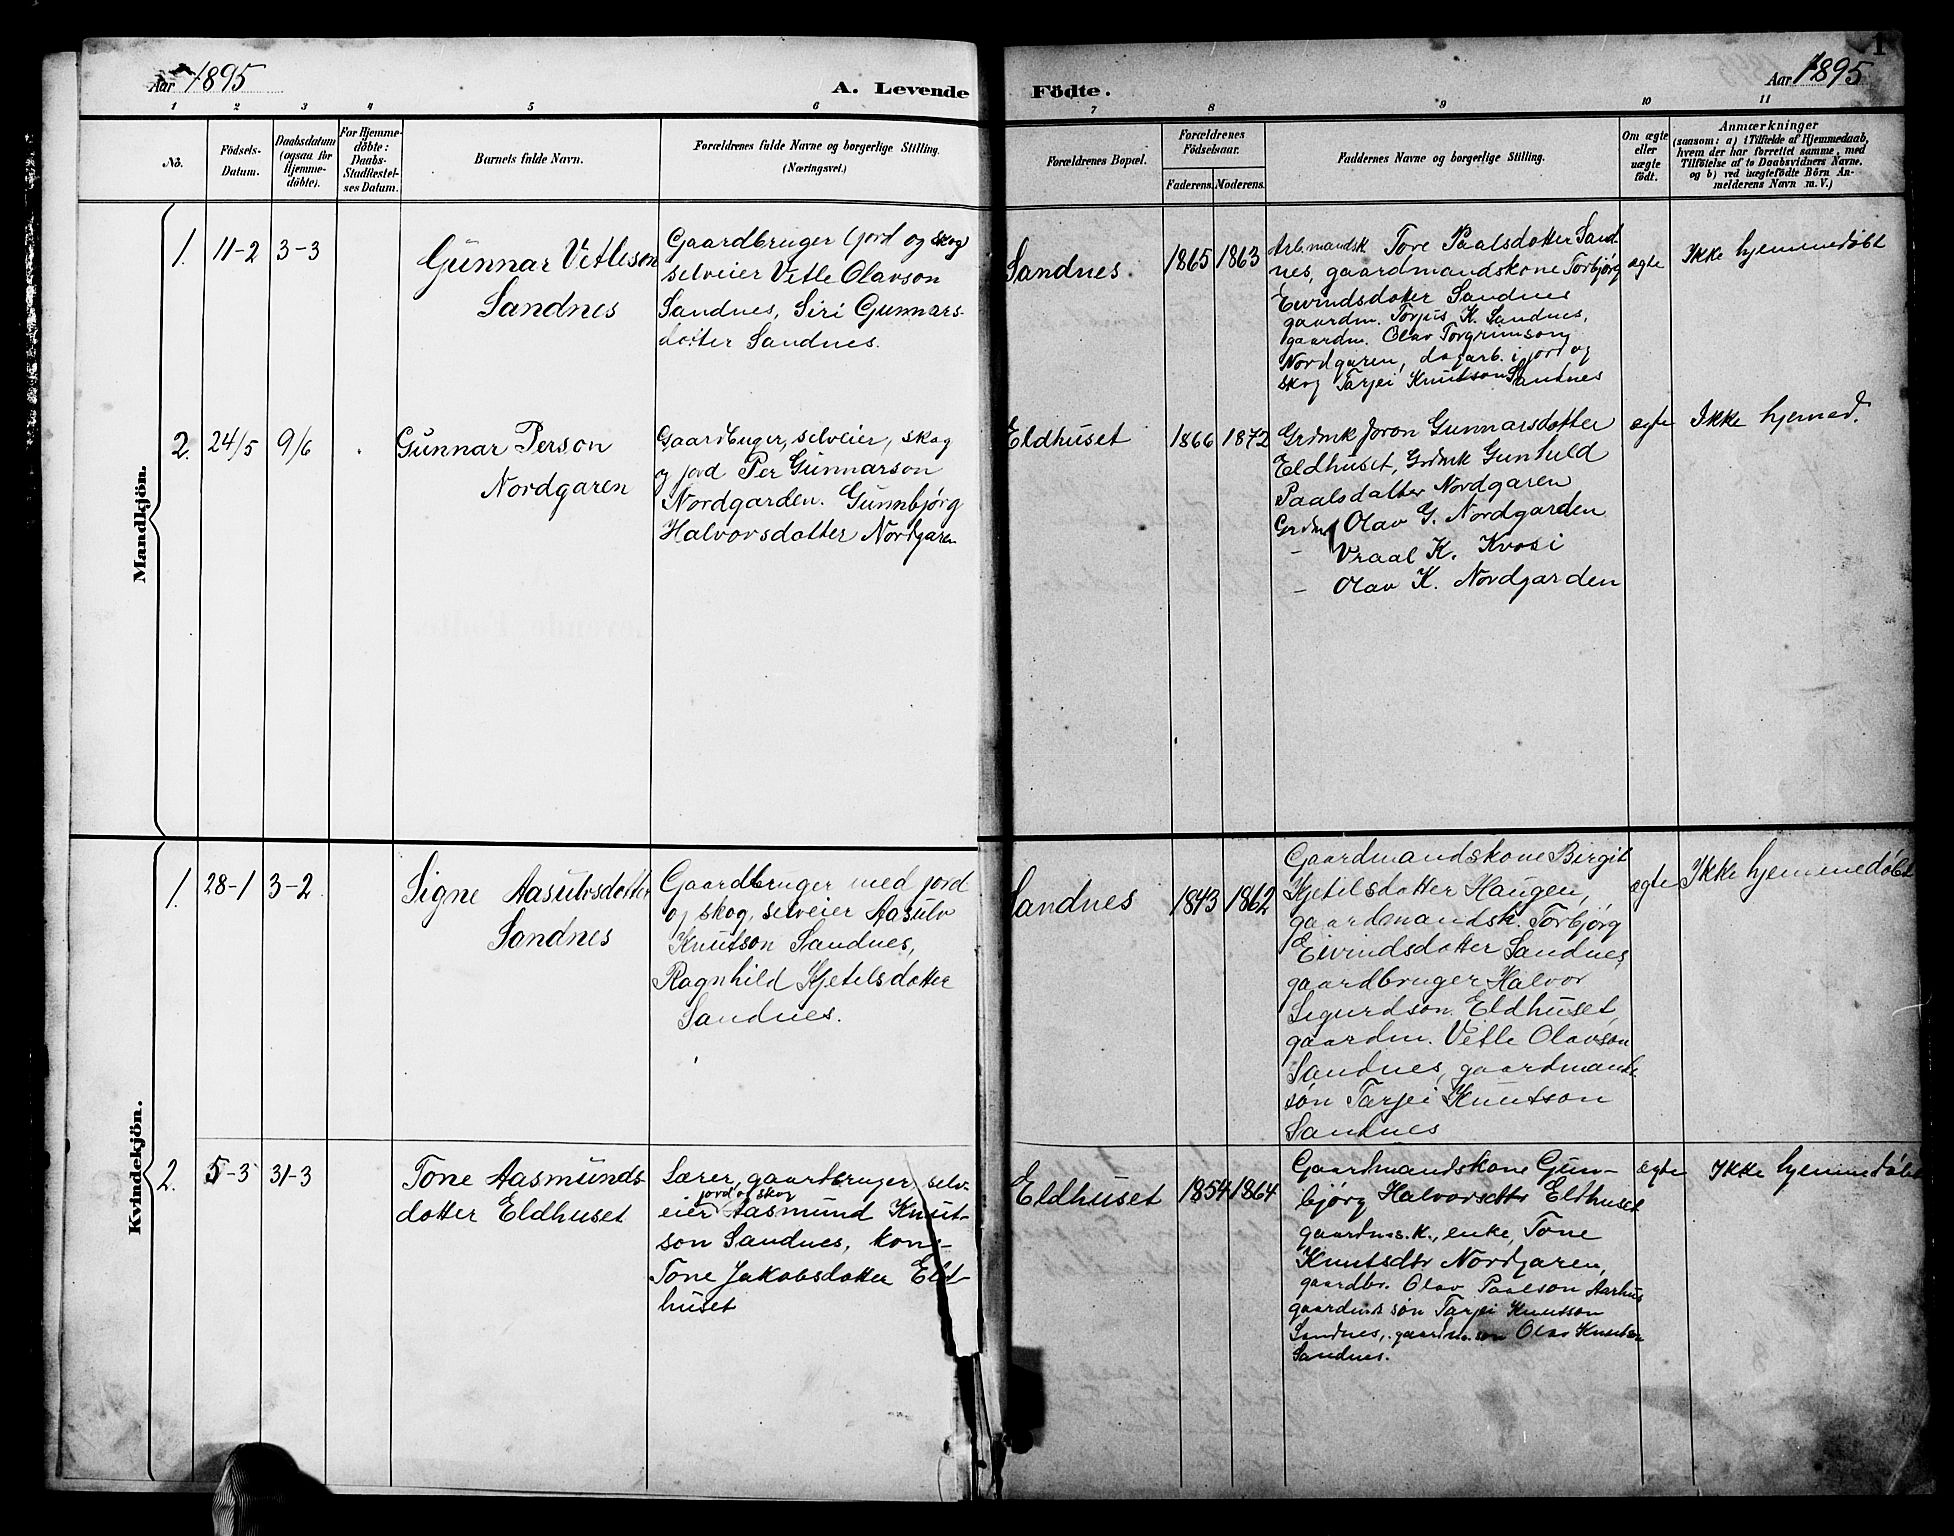 Aar 1895
A. Levende
1 2 3 4 5 6
No.
Födsels-
Datum.
Daabsdatum
(ogsaa for
Hjemme-
döbte).
For Hjemme-
döbte:
Daabs-
Stadfæstel-
ses Datum.
Barnets fulde Navn.
Forældrenes fulde Navne og borgerlige Stilling.
(Næringsvei.)
Mandkjön.
1. 11-2 3-3
Gunnar Vetleson
Sandnes
Gaardbruger (jord og skog)
selveier Vetle Olavson
Sandnes, Siri Gunnars-
dotter Sandnes.
2. 24/5 9/6
Gunnar Person
Nordgaren
Gaardbruger, selveier, skog
og jord Per Gunnarson
Nordgarden. Gunnbjørg
Halvorsdotter Nordgaren
Kvindekjön.
1. 28-1 3-2.
Signe Aasulvsdotter
Sandnes
Gaardbruger med jord
og skog, selveier Aasulv
Knutson Sandnes,
Ragnhild Kjetilsdotter
Sandnes.
2. 5-3 31-3
Tone Aasmunds-
dotter Eldhuset
Lærer, gaardbruger, selv-
jord og skog
eier Aasmund Knut-
son Sandnes, kone
Tone Jakobsdotter Eld-
huset
1
Aar 1895
Födte.
7 8 9 10 11
Forældrenes Bopæl.
Forældrenes
Födselsaar.
Faderens. Moderens.
Faddernes Navne og borgerlige Stilling.
Om ægte
eller
uægte
födt.
Anmærkninger
(saasom: a) i Tilfælde af Hjemmedaab,
hvem der har forrettet samme, med
Tilföielse af to Daabsvidners Navne.
og b) ved uægtefödte Börn An-
melderens Navn m. V.)
Sandnes. 1865 1863
Arb.mandsk Tore Paalsdotter Sand-
nes, gaardmandskone Torbjørg
Eivindsdotter Sandnes
gaardm. Torjus K. Sandnes,
gaardm. Olav Torgrimson
Nordgaren, dagarb. i jord og
skog Tarjei Knutson Sandnes
ægte
Ikke hjemmedøbt
Eldhuset 1866 1872
Grdmk Joron Gunnarsdotter
Eldhuset, Grdmk Gunhild
Paalsdatter Nordgaren
Grdm Olav G. Nordgarden
- Vraal K. Kvosi
- Olav K. Nordgarden
ægte
Ikke hjemed.
Sandnes 1843 1862
Gaardmandskone Birgit
Kjetilsdotter Haugen,
gaardmandsk. Torbjørg
Eivindsdotter Sandnes,
gaardbruger Halvor
Sigurdson Eldhuset,
gaardm. Vetle Olavson
Sandnes, gaardmands-
søn Tarjei Knutson
Sandnes
ægte
Ikke hjemmedøbt
Eldhuset 1854 1864
Gaardmandskone Gun-
bjørg Halvorsdtr Eldhuset
gaardms.k., enke, Tone
Knutsdtr Nordgaren,
gaardbr. Olav Paalson Aarhus
gaardmds søn Tarjei Knutson
Sandnes, gaardm. søn Olav Knutson
Sandnes.
ægte
Ikke hjemmedøbt